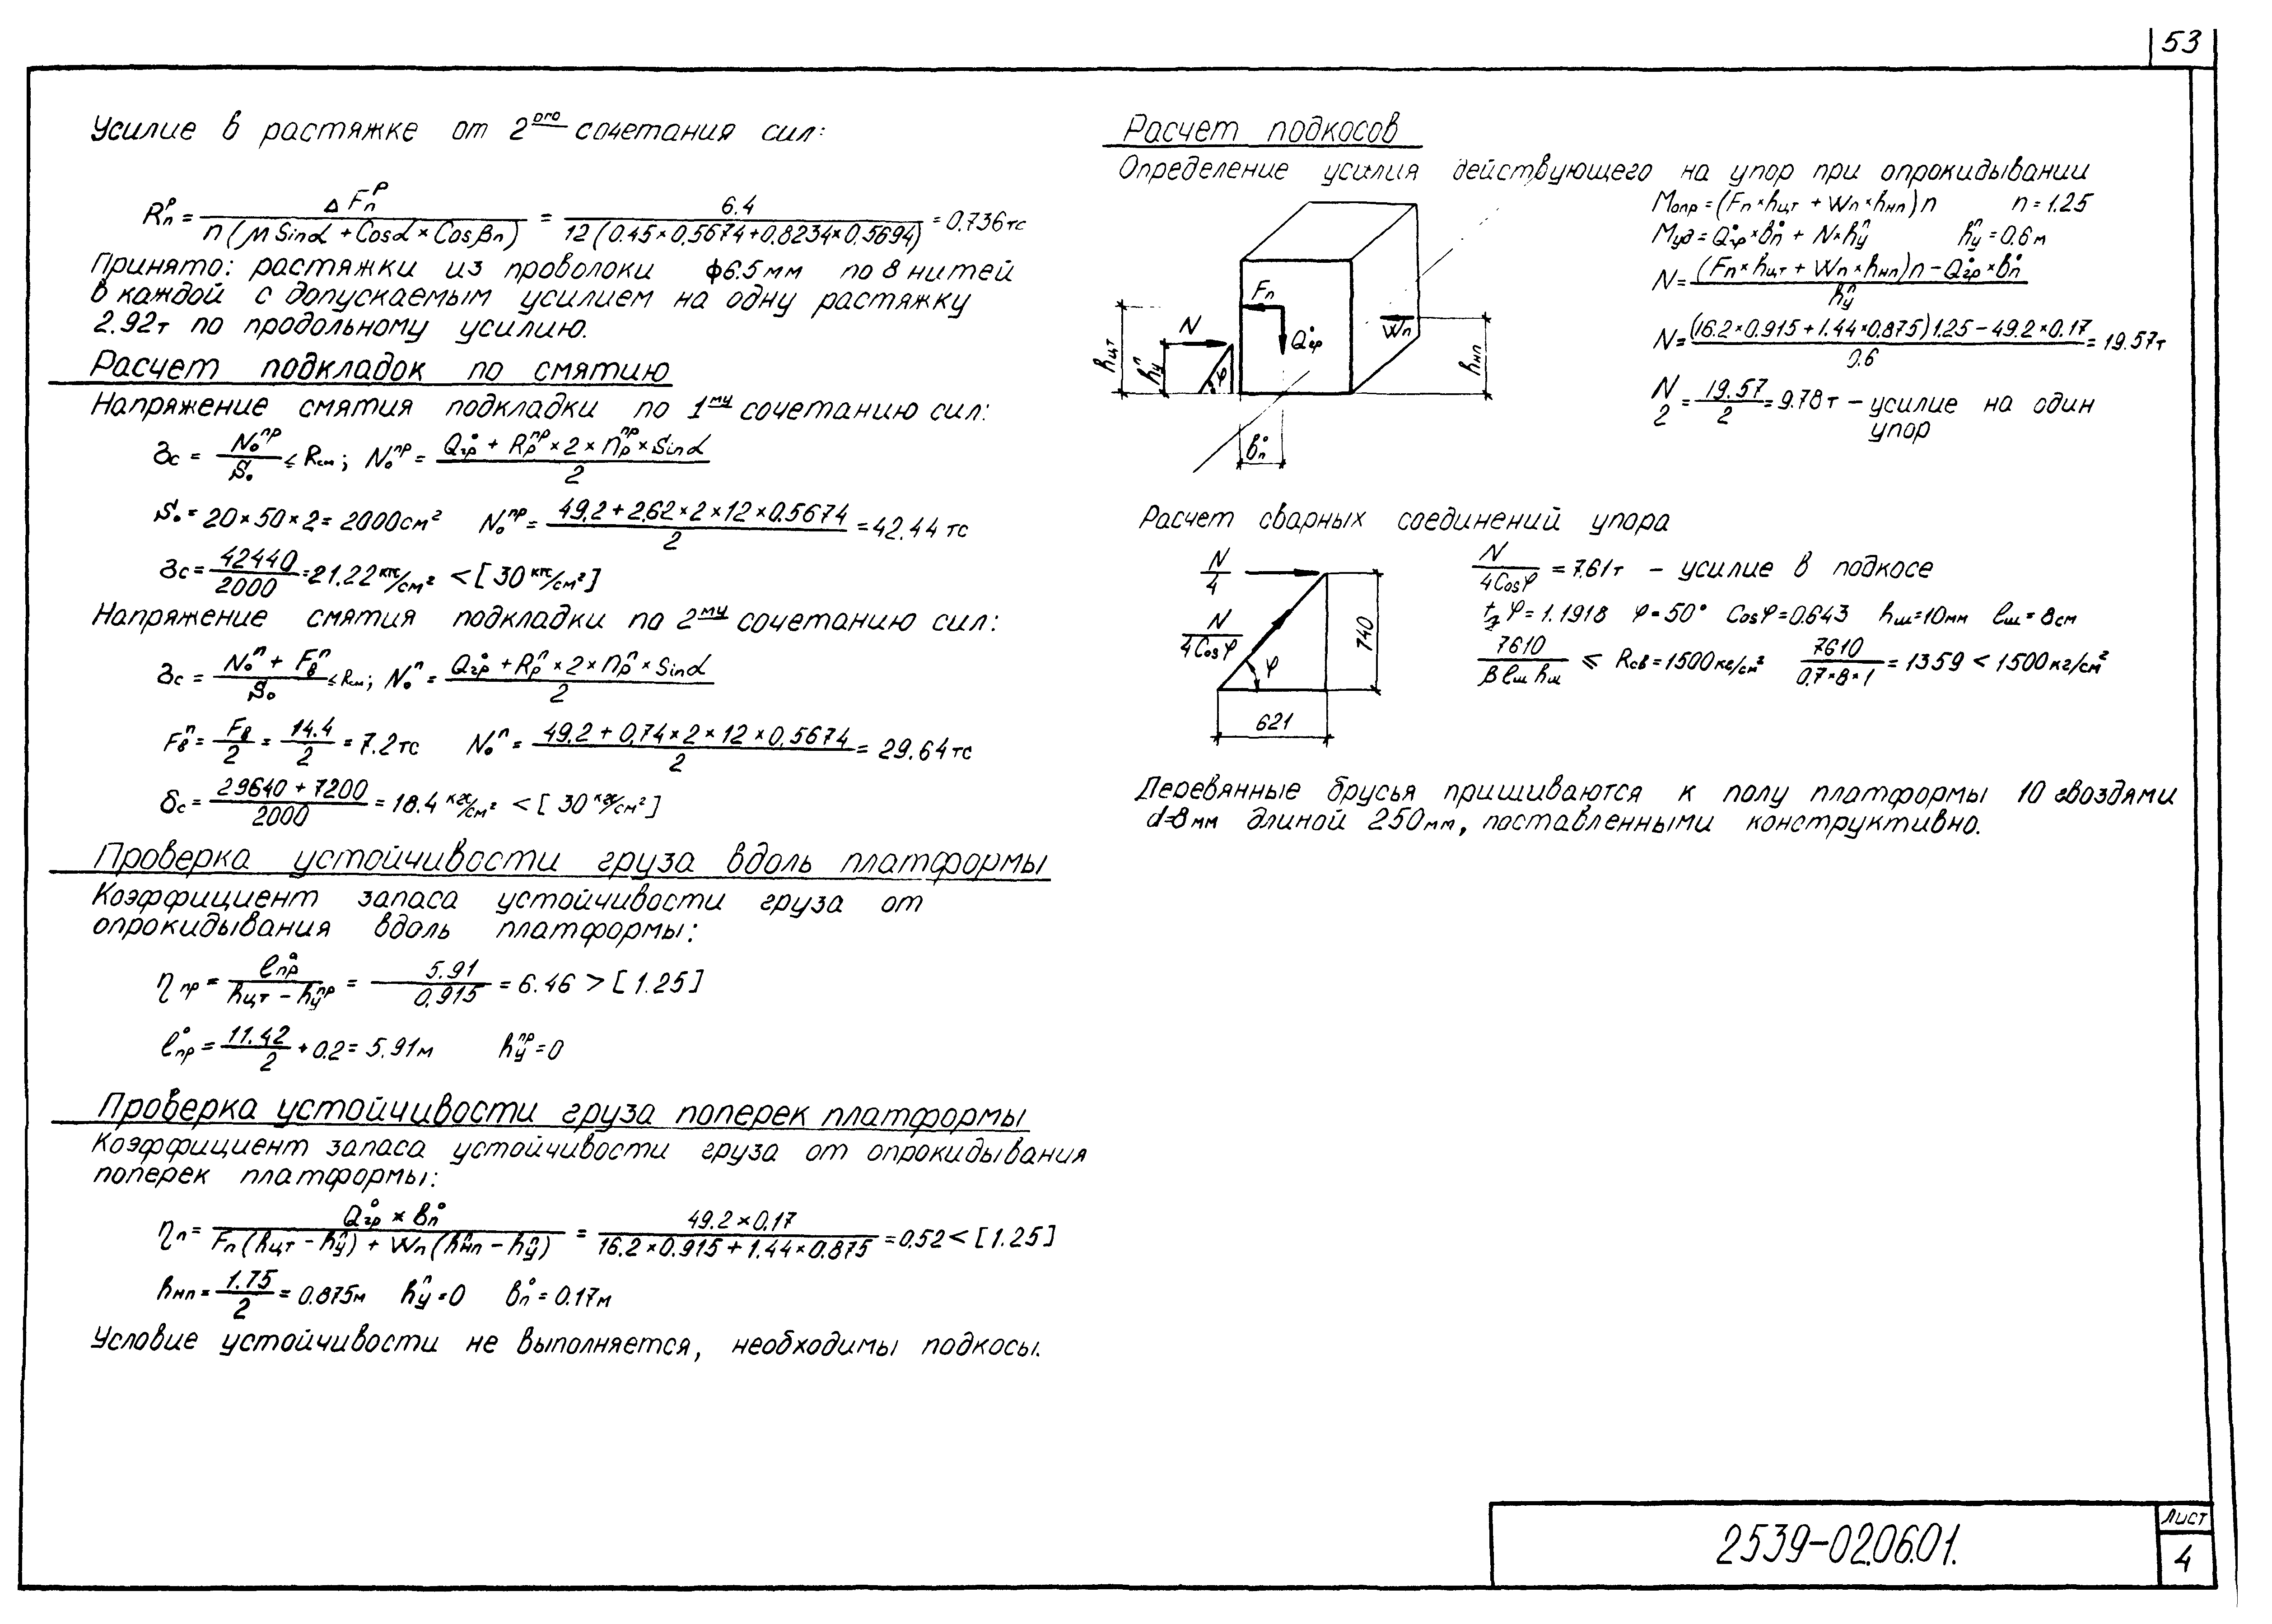 53
Усилие в растяжке от 2ого сочетания сил:
Rпр = ΔFпр / n(μ Sinα + Cosα × Cosβп) = 6.4 / 12(0.45×0.5674+0.8234×0.5694) = 0.736тс
Принято: растяжки из проволоки ф6.5мм по 8 нитей
в каждой с допускаемым усилием на одну растяжку
2.92т по продольному усилию.
Расчет подкладок по смятию
Напряжение смятия подкладки по 1му сочетанию сил:
δс = N₀ пр / S₀ ≤ Rсм; N₀ пр = Q°гр + Rр пр × 2 × nр пр × Sinα / 2
S₀ = 20×50×2 = 2000см² N₀ пр = 49.2 + 2.62×2×12×0.5674 / 2 = 42.44 тс
δс = 42440 / 2000 = 21.22 кгс/см² < [30 кгс/см²]
Напряжение смятия подкладки по 2му сочетанию сил:
δс = N₀ п + Fв п / S₀ ≤ Rсм; N₀ п = Q°гр + Rр п × 2 × nр п × Sinα / 2
Fв п = Fв / 2 = 14.4 / 2 = 7.2тс N₀ п = 49.2 + 0.74×2×12×0.5674 / 2 = 29.64 тс
δс = 29640 + 7200 / 2000 = 18.4 кгс/см² < [30 кгс/см²]
Проверка устойчивости груза вдоль платформы
Коэффициент запаса устойчивости груза от
опрокидывания вдоль платформы:
ηпр = l°пр / hцт − hу пр = 5.91 / 0.915 = 6.46 > [1.25]
l°пр = 11.42 / 2 + 0.2 = 5.91м hу пр = 0
Проверка устойчивости груза поперек платформы
Коэффициент запаса устойчивости груза от опрокидывания
поперек платформы:
ηп = Q°гр × в°п / Fп(hцт − hу п) + Wп(hнп п − hу п) = 49.2×0.17 / 16.2×0.915 + 1.44×0.875 = 0.52 < [1.25]
hнп = 1.75 / 2 = 0.875м hу п = 0 в°п = 0.17м
Условие устойчивости не выполняется, необходимы подкосы.
Расчет подкосов
Определение усилия действующего на упор при опрокидывании
Mопр = (Fп×hцт + Wп×hнп)n n = 1.25
Mуд = Q°гр×в°п + N×hу п hу п = 0.6м
N = (Fп×hцт + Wп×hнп)n − Q°гр×в°п / hу п
N = (16.2×0.915 + 1.44×0.875)1.25 − 49.2×0.17 / 0.6 = 19.57т
N / 2 = 19.57 / 2 = 9.78т – усилие на один
упор
Fп
N
Q°гр
Wп
hцт
hу п
φ
hнп
в°п
Расчет сварных соединений упора
N / 4
N / 4Cosφ
φ
740
621
N / 4Cosφ = 7.61т – усилие в подкосе
tg φ = 1.1918 φ = 50° Cosφ = 0.643 hш = 10мм lш = 8см
7610 / β lш hш ≤ Rсв = 1500 кг/см² 7610 / 0.7×8×1 = 1359 < 1500 кг/см²
Деревянные брусья пришиваются к полу платформы 10 гвоздями
d=8мм длиной 250мм, поставленными конструктивно.
2539-02.06.01.
Лист
4